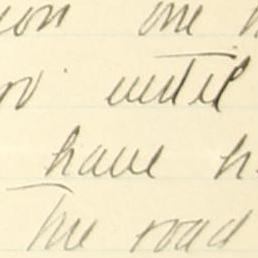 on one
until
have h
The road